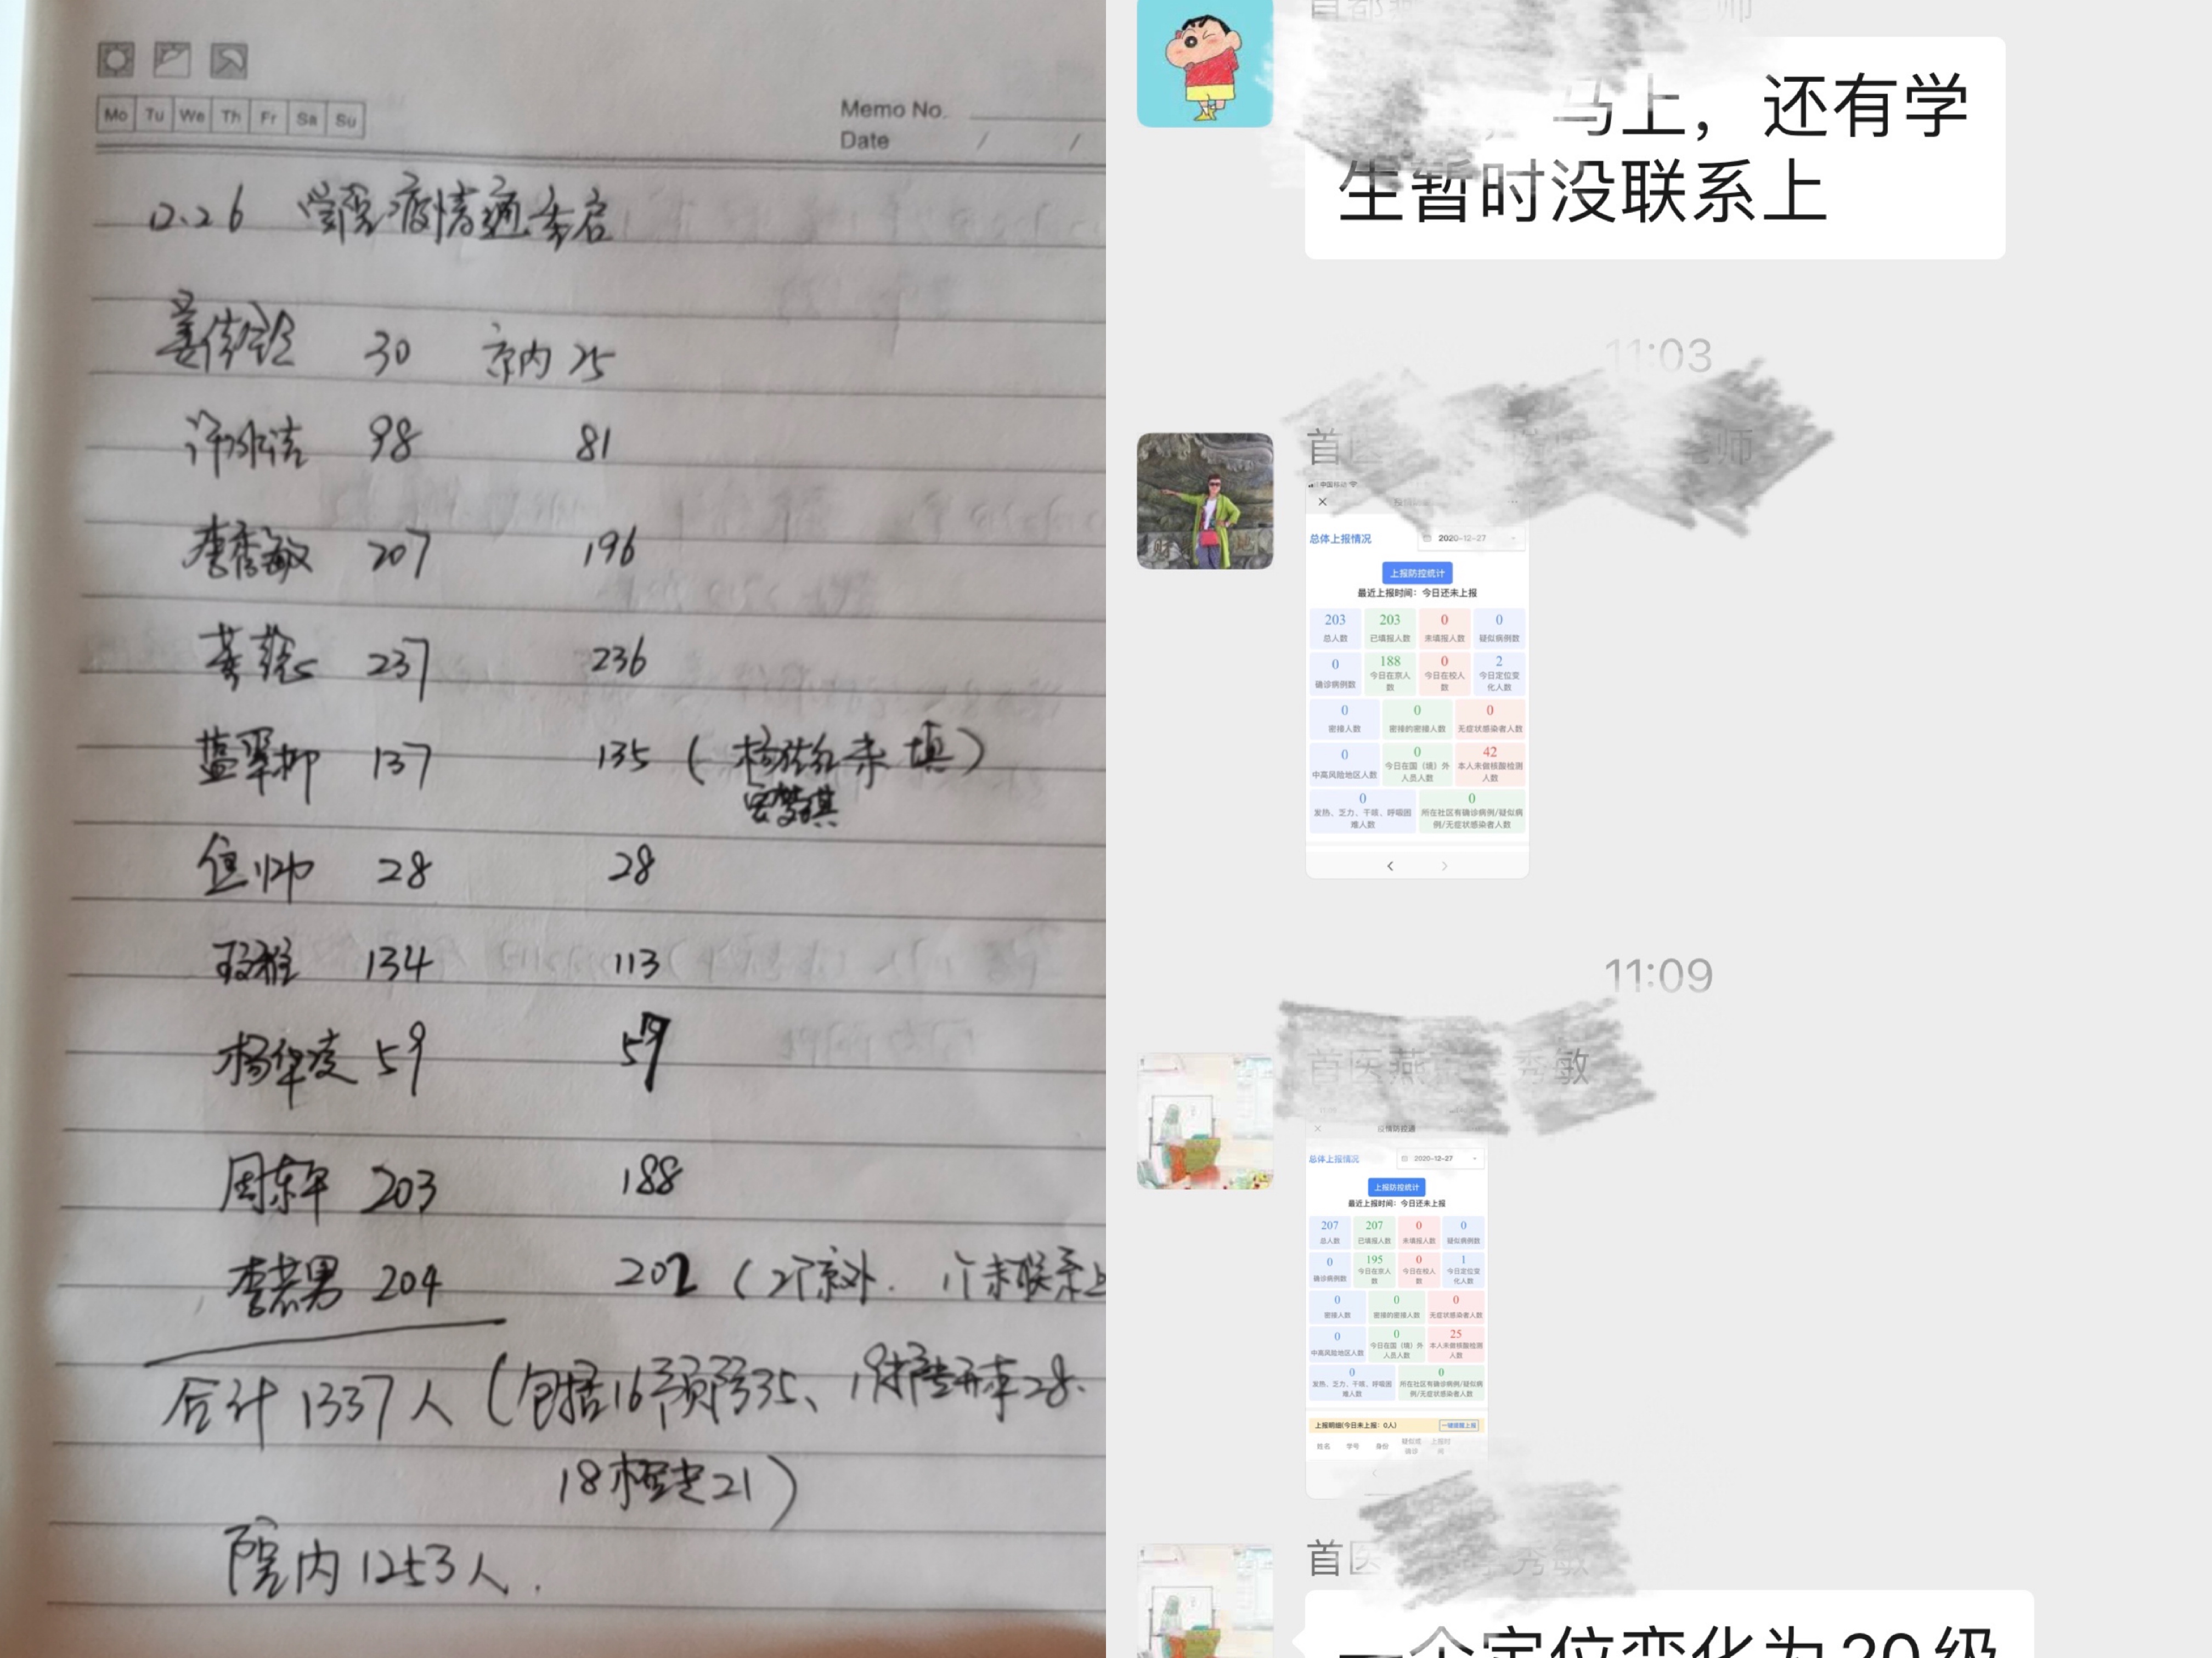 Mo Tu We Th Fr Sa Su
Memo No.
Date / /
12.26 学院疫情通
30 京内 25
许冰洁 98 81
李秀敏 207 196
237 236
蓝翠柳 137 135 ( 未填)
焦帅 28 28
134 113
杨华凌 59 59
周东平 203 188
李若男 204 202 (2个京外. 1个未联系上
合计 1337人 (包括16 35、 28.
18 21)
院内 1253人.
马上，还有学
生暂时没联系上
11:03
首医 老师
中国移动
总体上报情况 2020-12-27
上报防控统计
最近上报时间：今日还未上报
203 203 0 0
总人数 已填报人数 未填报人数 疑似病例数
0 188 0 2
确诊病例数 今日在京人数 今日在校人数 今日定位变化人数
0 0 0
密接人数 密接的密接人数 无症状感染者人数
0 0 42
中高风险地区人数 今日在国（境）外人员人数 本人未做核酸检测人数
0 0
发热、乏力、干咳、呼吸困难人数 所在社区有确诊病例/疑似病例/无症状感染者人数
11:09
首医燕 秀敏
疫情防控通
总体上报情况 2020-12-27
上报防控统计
最近上报时间：今日还未上报
207 207 0 0
总人数 已填报人数 未填报人数 疑似病例数
0 195 0 1
确诊病例数 今日在京人数 今日在校人数 今日定位变化人数
0 0 0
密接人数 密接的密接人数 无症状感染者人数
0 0 25
中高风险地区人数 今日在国（境）外人员人数 本人未做核酸检测人数
0 0
发热、乏力、干咳、呼吸困难人数 所在社区有确诊病例/疑似病例/无症状感染者人数
上报明细(今日未上报：0人) 一键提醒上报
姓名 学号 身份 疑似或确诊 上报时间
首医 秀敏
一个定位变化为20级